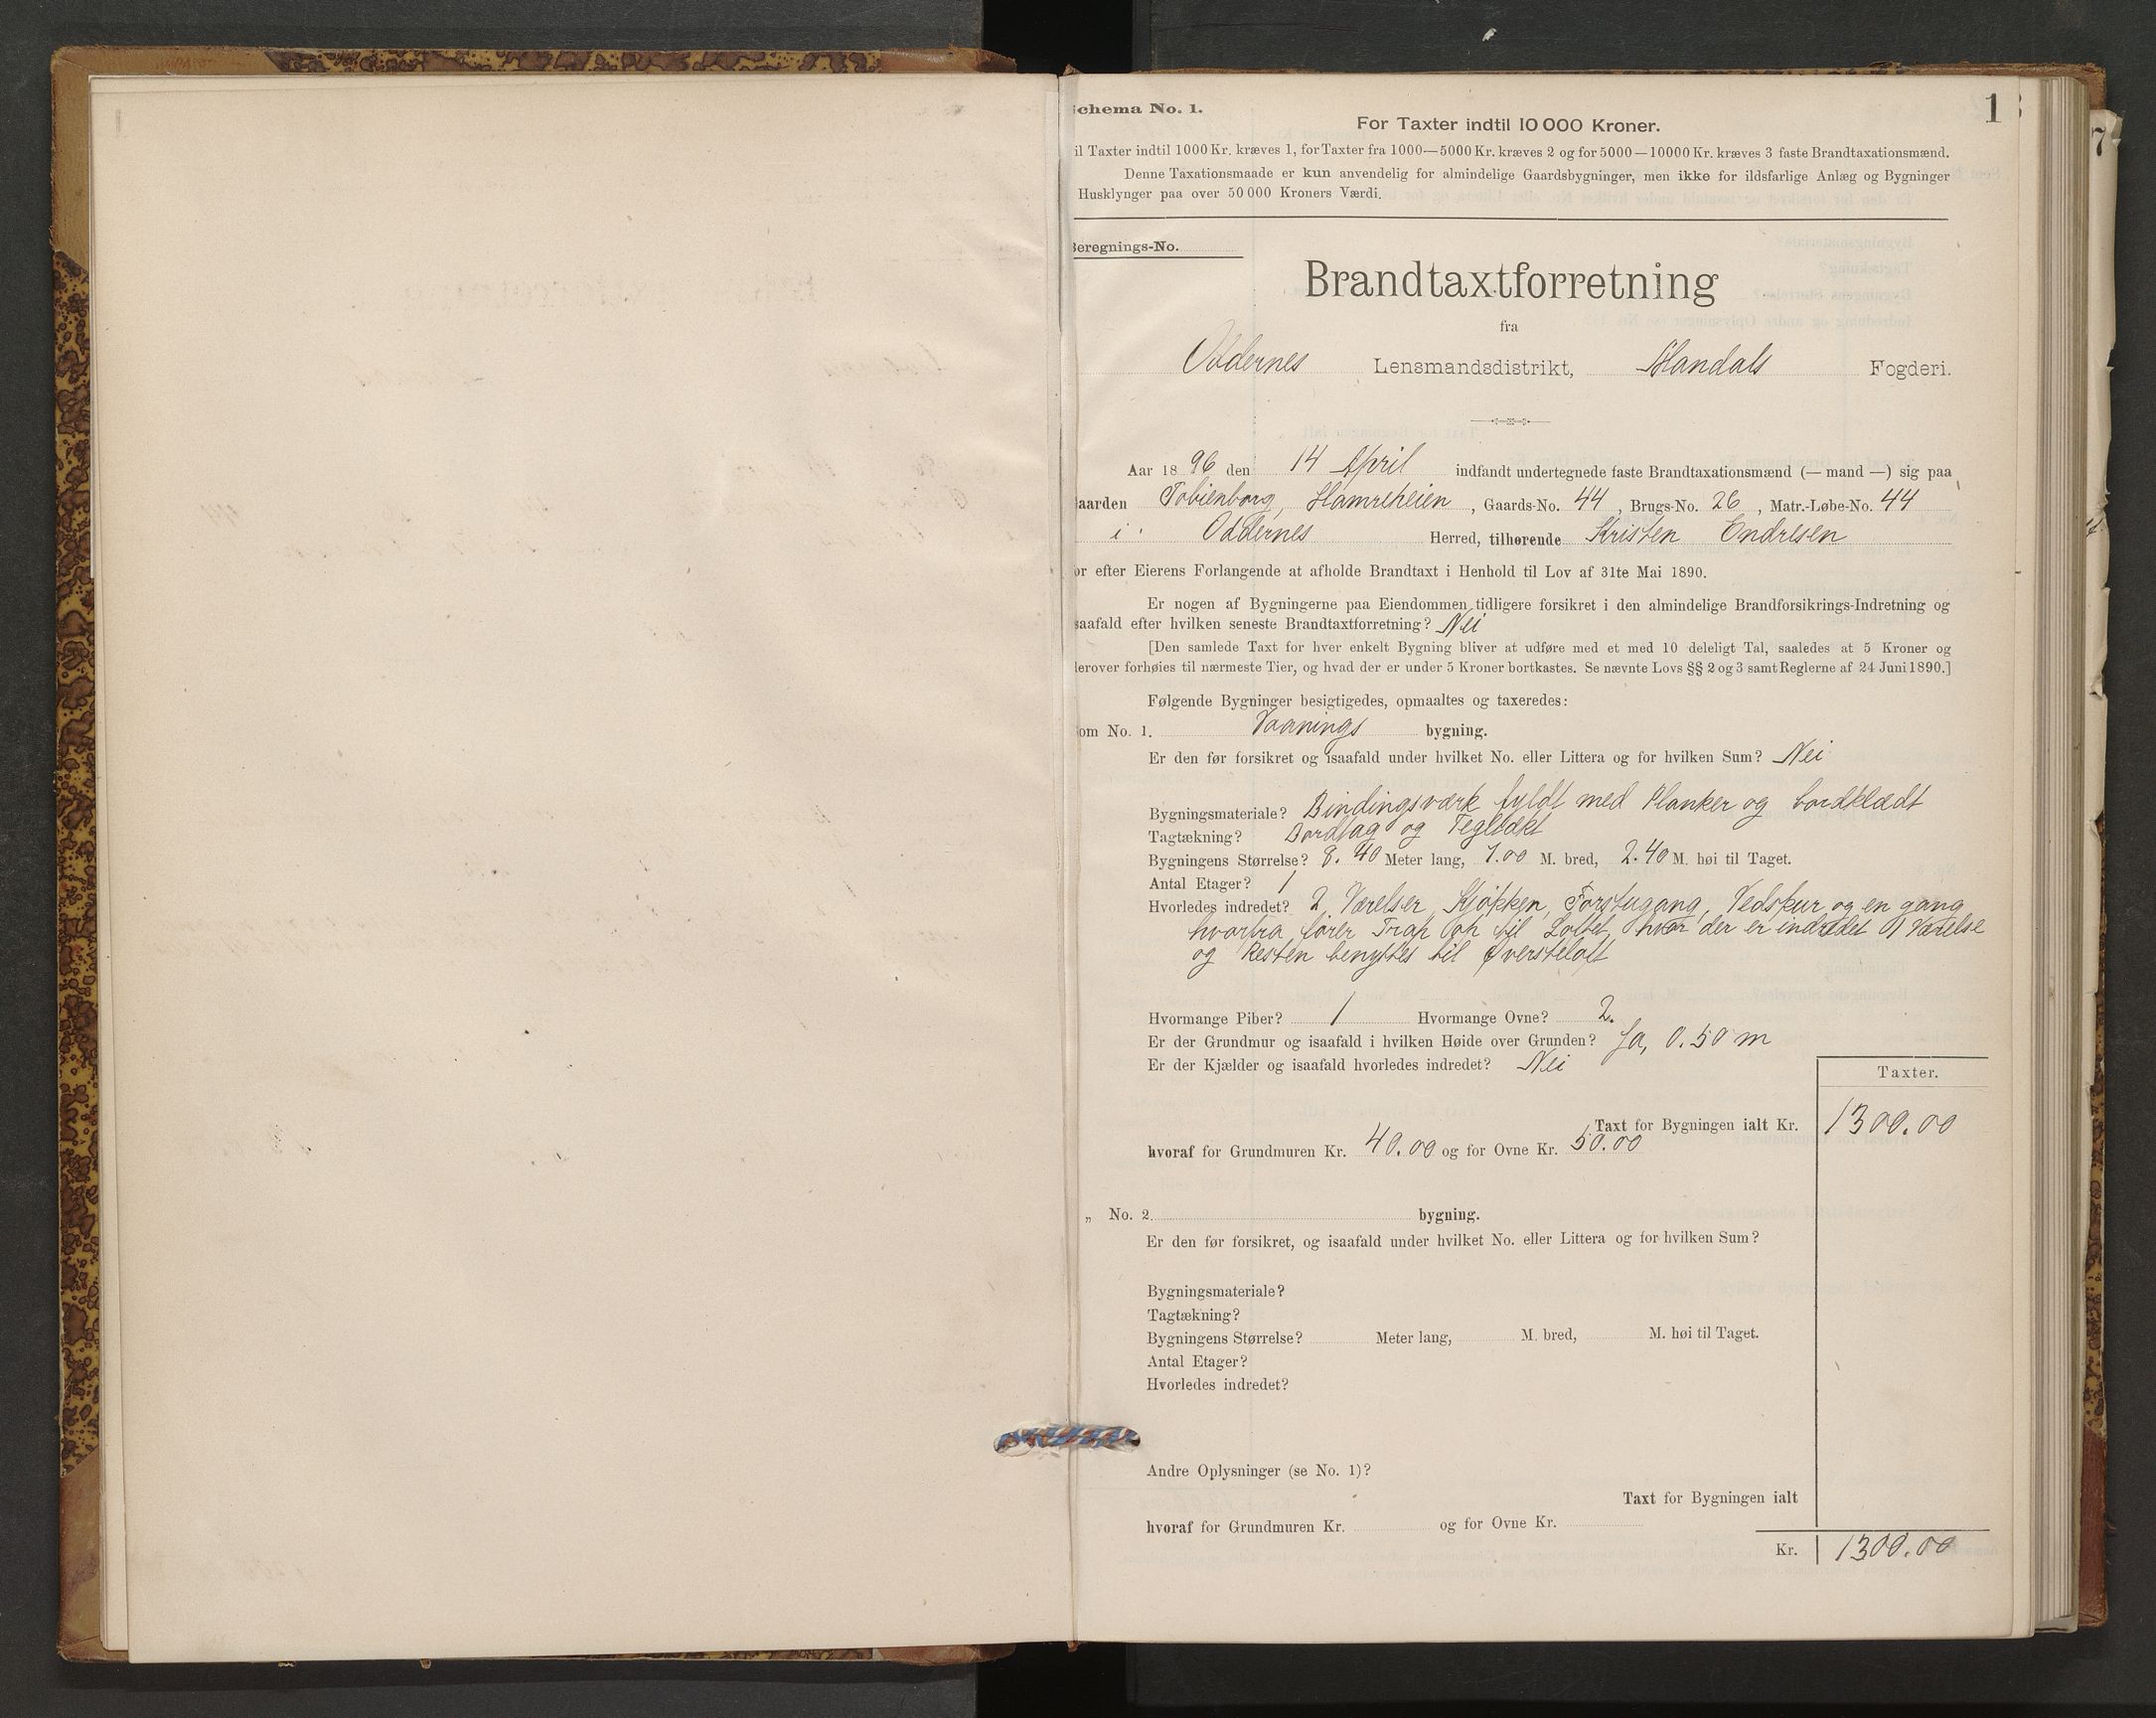 chema No. 1.
1
For Taxter indtil 10 000 Kroner.
il Taxter indtil 1000 Kr. kræves 1, for Taxter fra 1000—5000 Kr. kræves 2 og for 5000—10000 Kr. kræves 3 faste Brandtaxationsmænd.
Denne Taxationsmaade er kun anvendelig for almindelige Gaardsbygninger, men ikke for ildsfarlige Anlæg og Bygninger
Husklynger paa over 50 000 Kroners Værdi.
Beregnings-No.
Brandtaxtforretning
fra
Oddernes Lensmandsdistrikt, Mandals Fogderi.
Aar 1896 den 14 April indfandt undertegnede faste Brandtaxationsmænd (— mand —) sig paa
aarden Tobienborg, Hamreheien, Gaards-No. 44, Brugs-No. 26, Matr.-Løbe-No. 44
i Oddernes Herred, tilhørende Kristen Endresen
or efter Eierens Forlangende at afholde Brandtaxt i Henhold til Lov af 31te Mai 1890.
Er nogen af Bygningerne paa Eiendommen tidligere forsikret i den almindelige Brandforsikrings-Indretning og
saafald efter hvilken seneste Brandtaxtforretning? Nei
[Den samlede Taxt for hver enkelt Bygning bliver at udføre med et med 10 deleligt Tal, saaledes at 5 Kroner og
derover forhøies til nærmeste Tier, og hvad der er under 5 Kroner bortkastes. Se nævnte Lovs §§ 2 og 3 samt Reglerne af 24 Juni 1890.]
Følgende Bygninger besigtigedes, opmaaltes og taxeredes:
om No. 1. Vaanings bygning.
Er den før forsikret og isaafald under hvilket No. eller Littera og for hvilken Sum? Nei
Bygningsmateriale? Bindingsværk fyldt med Planker og bordklædt
Tagtækning? Bordtag og Teglædkt
Bygningens Størrelse? 8.40 Meter lang, 7.00 M. bred, 2.40 M. høi til Taget.
Antal Etager? 1
Hvorledes indredet? 2 Værelser, Kjøkken, Forstugang, Vedskur og en gang
hvorfra fører Trap op til Loftet, hvor der er indredet 1 Værelse
og Resten benyttes til Øversteloft
Hvormange Piber? 1 Hvormange Ovne? 2.
Er der Grundmur og isaafald i hvilken Høide over Grunden? Ja, 0.50 m
Er der Kjælder og isaafald hvorledes indredet? Nei
Taxter.
Taxt for Bygningen ialt Kr. 1300.00
hvoraf for Grundmuren Kr. 40.00 og for Ovne Kr. 50.00
„ No. 2. bygning.
Er den før forsikret, og isaafald under hvilket No. eller Littera og for hvilken Sum?
Bygningsmateriale?
Tagtækning?
Bygningens Størrelse? Meter lang, M. bred, M. høi til Taget.
Antal Etager?
Hvorledes indredet?
Andre Oplysninger (se No. 1)?
Taxt for Bygningen ialt
hvoraf for Grundmuren Kr. og for Ovne Kr.
Kr. 1300.00
7